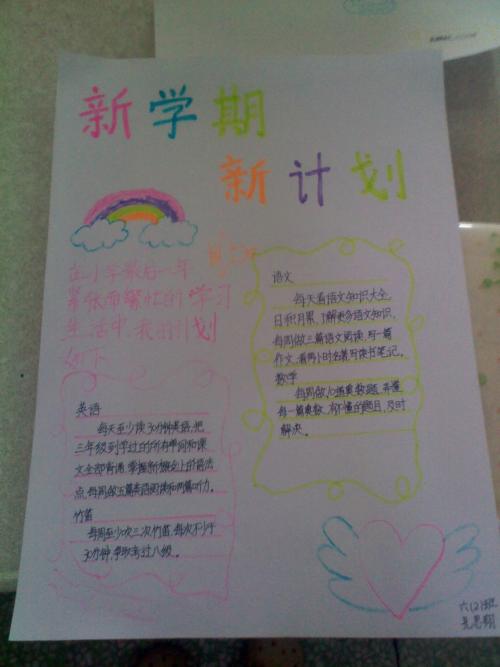 新学期
新计划
在小学最后一年
紧张而繁忙的学习
生活中,我的计划
如下
语文
每天看语文知识大全,
日积月累,了解更多语文知识,
每周做三篇语文阅读,写一篇
作文,看两小时名著写读书笔记。
数学
每周做10道奥数题,弄懂
每一篇奥数,有不懂的题目,及时
解决。
英语
每天至少读30分钟英语,把
三年级到学过的所有单词和课
文全部背诵,掌握新概念上的语法
点,每周做五篇英语阅读和两篇听力。
竹笛
每周至少吹三次竹笛,每次不少于
30分钟,争取考过八级。
六(2)班